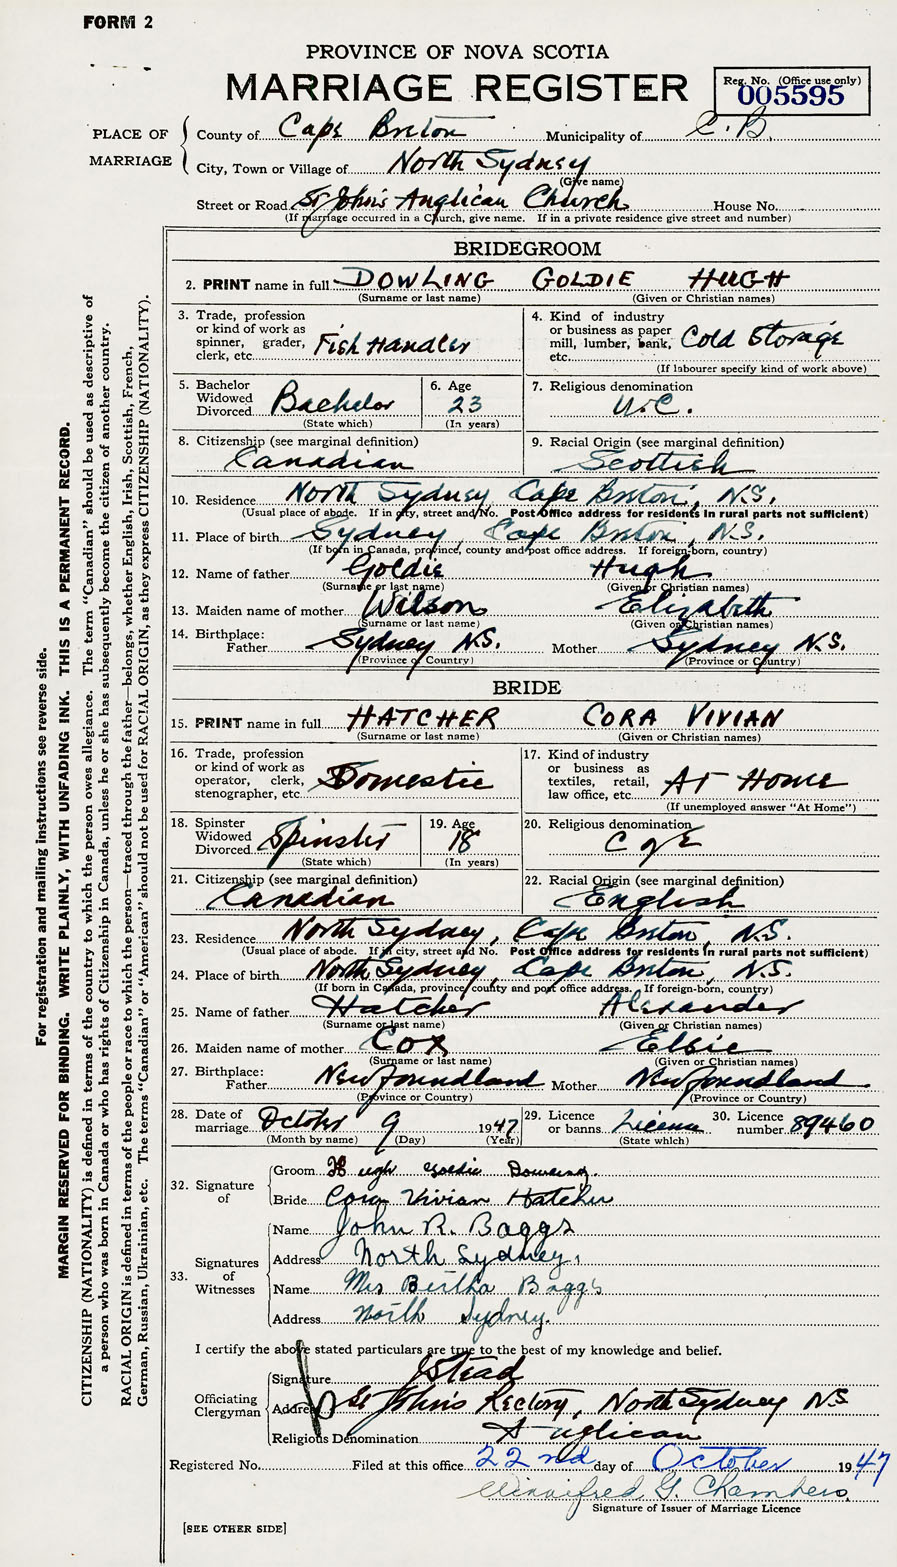 FORM 2
PROVINCE OF NOVA SCOTIA
MARRIAGE REGISTER
Reg. No. (Office use only)
005595
PLACE OF MARRIAGE
County of Cape Breton Municipality of C.B.
City, Town or Village of North Sydney
(Give name)
Street or Road St John's Anglican Church House No.
(If marriage occurred in a Church, give name. If in a private residence give street and number)
BRIDEGROOM
2. PRINT name in full DOWLING GOLDIE HUGH
(Surname or last name) (Given or Christian names)
3. Trade, profession or kind of work as spinner, grader, clerk, etc. Fish Handler
4. Kind of industry or business as paper mill, lumber, bank, etc. Cold Storage
(If labourer specify kind of work above)
5. Bachelor Widowed Divorced Bachelor
(State which)
6. Age 23
(In years)
7. Religious denomination U.C.
8. Citizenship (see marginal definition) Canadian
9. Racial Origin (see marginal definition) Scottish
10. Residence North Sydney, Cape Breton, N.S.
(Usual place of abode. If in city, street and No. Post Office address for residents in rural parts not sufficient)
11. Place of birth Sydney, Cape Breton, N.S.
(If born in Canada, province, county and post office address. If foreign-born, country)
12. Name of father Goldie Hugh
(Surname or last name) (Given or Christian names)
13. Maiden name of mother Wilson Elizabeth
(Surname or last name) (Given or Christian names)
14. Birthplace: Father Sydney N.S. Mother Sydney N.S.
(Province or Country) (Province or Country)
BRIDE
15. PRINT name in full HATCHER CORA VIVIAN
(Surname or last name) (Given or Christian names)
16. Trade, profession or kind of work as operator, clerk, stenographer, etc. Domestic
17. Kind of industry or business as textiles, retail, law office, etc. At Home
(If unemployed answer "At Home")
18. Spinster Widowed Divorced Spinster
(State which)
19. Age 18
(In years)
20. Religious denomination C of E
21. Citizenship (see marginal definition) Canadian
22. Racial Origin (see marginal definition) English
23. Residence North Sydney, Cape Breton, N.S.
(Usual place of abode. If in city, street and No. Post Office address for residents in rural parts not sufficient)
24. Place of birth North Sydney, Cape Breton, N.S.
(If born in Canada, province, county and post office address. If foreign-born, country)
25. Name of father Hatcher Alexander
(Surname or last name) (Given or Christian names)
26. Maiden name of mother Cox Elsie
(Surname or last name) (Given or Christian names)
27. Birthplace: Father Newfoundland Mother Newfoundland
(Province or Country) (Province or Country)
28. Date of marriage October 9 1947
(Month by name) (Day) (Year)
29. Licence or banns License
(State which)
30. Licence number 89460
32. Signature of
Groom Hugh Goldie Dowling.
Bride Cora Vivian Hatcher
33. Signatures of Witnesses
Name John R. Baggs
Address North Sydney,
Name Mrs Bertha Baggs
Address North Sydney.
I certify the above stated particulars are true to the best of my knowledge and belief.
Officiating Clergyman
Signature Stead
Address St John's Rectory, North Sydney N.S
Religious Denomination Anglican
Registered No. Filed at this office 22nd day of October 1947
Winnifred G. Chambers,
Signature of Issuer of Marriage Licence
[SEE OTHER SIDE]
For registration and mailing instructions see reverse side.
MARGIN RESERVED FOR BINDING. WRITE PLAINLY, WITH UNFADING INK. THIS IS A PERMANENT RECORD.
CITIZENSHIP (NATIONALITY) is defined in terms of the country to which the person owes allegiance. The term "Canadian" should be used as descriptive of
a person who was born in Canada or who has rights of Citizenship in Canada, unless he or she has subsequently become the citizen of another country.
RACIAL ORIGIN is defined in terms of the people or race to which the person—traced through the father—belongs, whether English, Irish, Scottish, French,
German, Russian, Ukrainian, etc. The terms "Canadian" or "American" should not be used for RACIAL ORIGIN, as they express CITIZENSHIP (NATIONALITY).